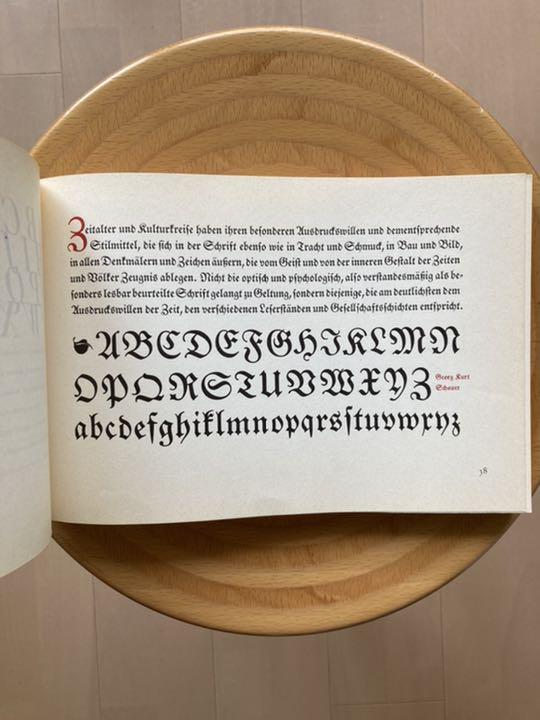 Zeitalter und Kulturkreise haben ihren besonderen Ausdruckswillen und dementsprechende
Stilmittel, die sich in der Schrift ebenso wie in Tracht und Schmuck, in Bau und Bild,
in allen Denkmälern und Zeichen äußern, die vom Geist und von der inneren Gestalt der Zeiten
und Völker Zeugnis ablegen. Nicht die optisch und psychologisch, also verstandesmäßig als be-
sonders lesbar beurteilte Schrift gelangt zu Geltung, sondern diejenige, die am deutlichsten dem
Ausdruckswillen der Zeit, den verschiedenen Leserständen und Gesellschaftsschichten entspricht.
ABCDEFGHIKLMN
OPQRSTUVWXYZ
Georg Kurt
Schauer
abcdefghiklmnopqrsſtuvwxyz
38